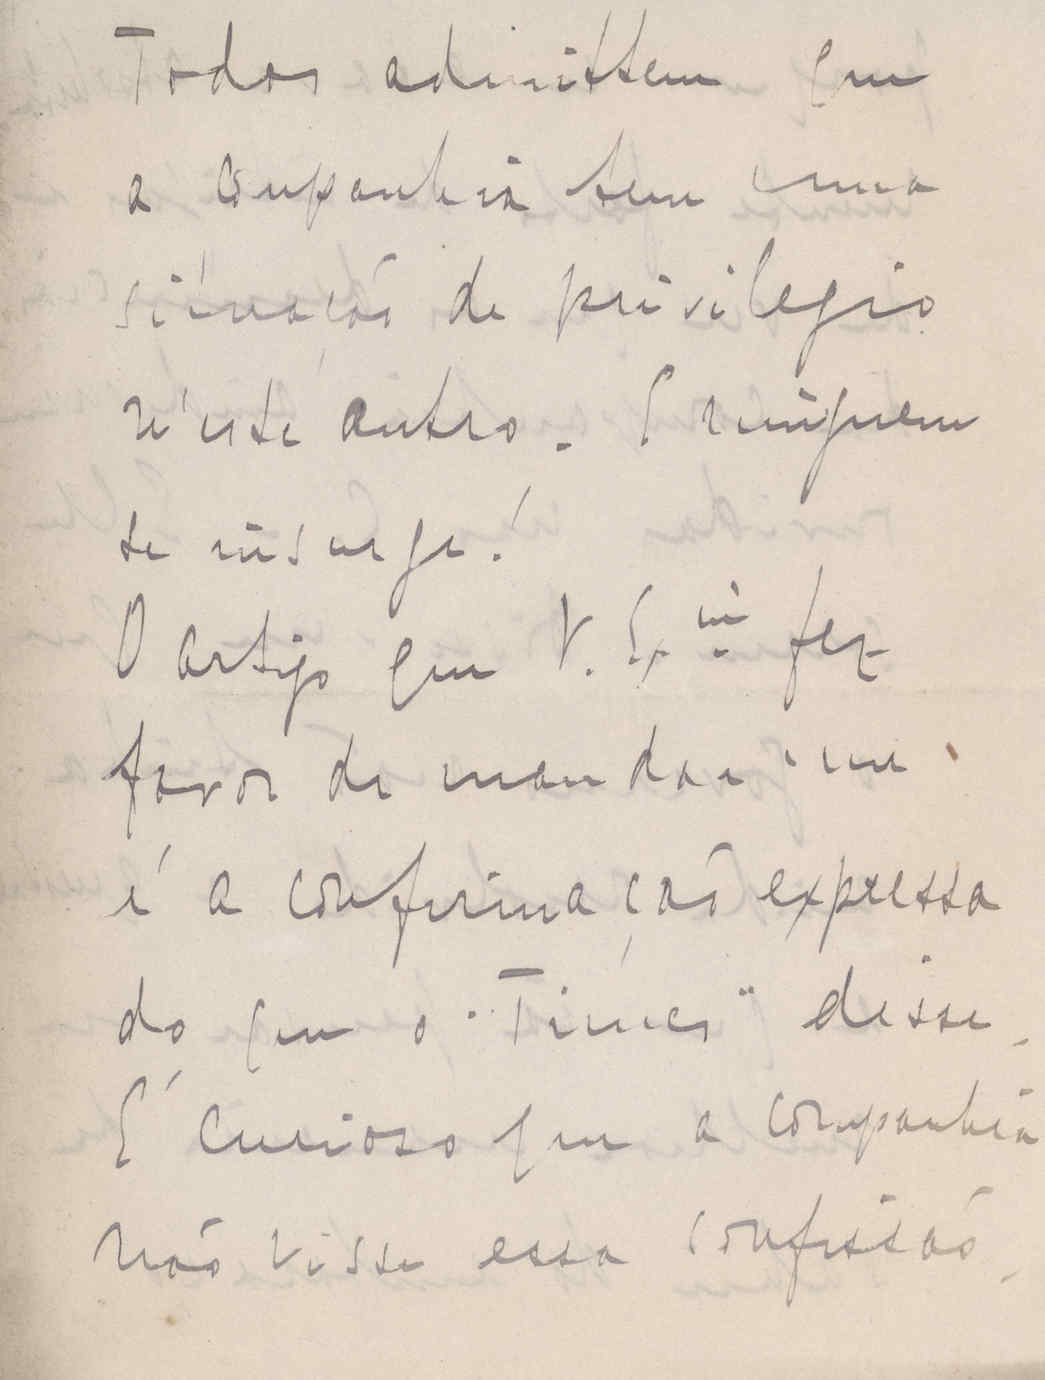 Todos admittem que
a companhia tem uma
situação de privilegio
n'este outro. E ninguem
se insurge!
O artigo que V. Ex.ª fez
favor de mandar-me
é a confirmação expressa
do que o "Times" disse.
É curioso que a companhia
não visse essa confissão.